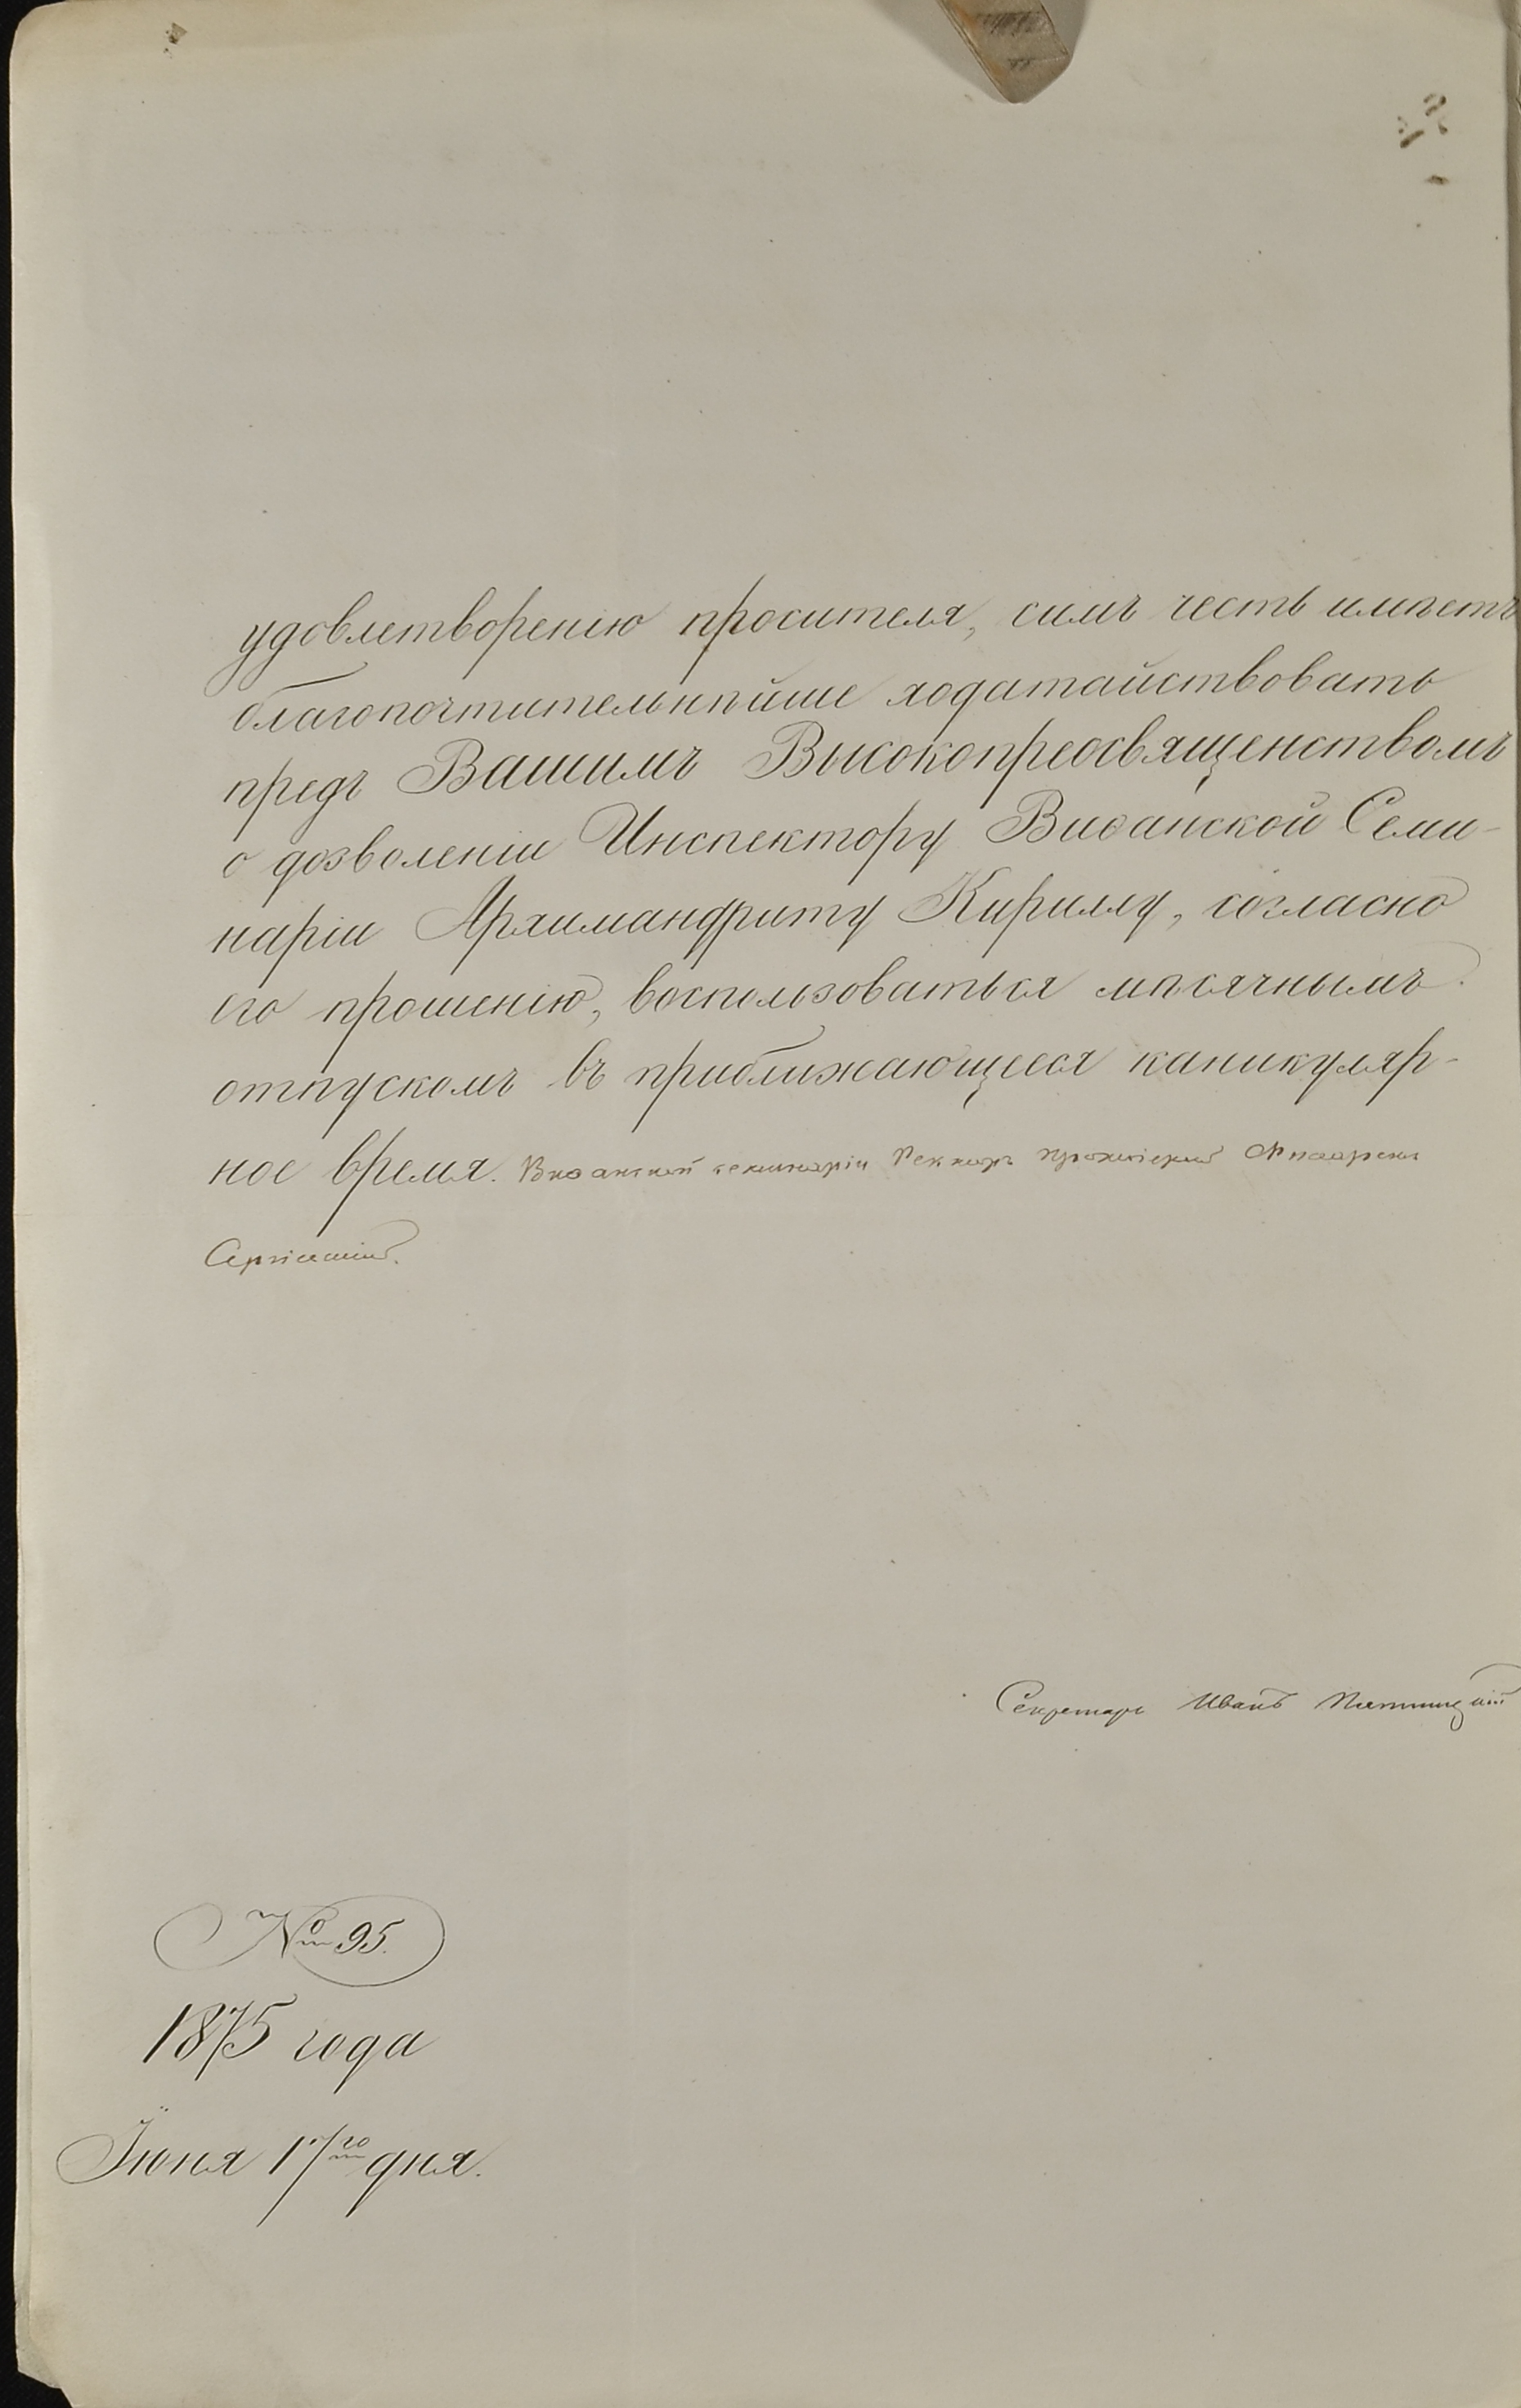 удовлетворенію просителя, симъ честь имѣетъ
благопочтительнѣйше ходатайствовать
предъ Вашимъ Высокопреосвященствомъ
о дозволеніи Инспектору Виѳанской Семи-
наріи Архимандриту Кириллу, согласно
его прошенію, воспользоваться мѣсячнымъ
отпускомъ въ приближающееся каникуляр-
ное время. Виѳанской семинаріи Ректоръ протоіерей
Сергіевскій.
Секретарь Иванъ Пятницкій
№ 95.
1875 года
Іюня 17го дня.